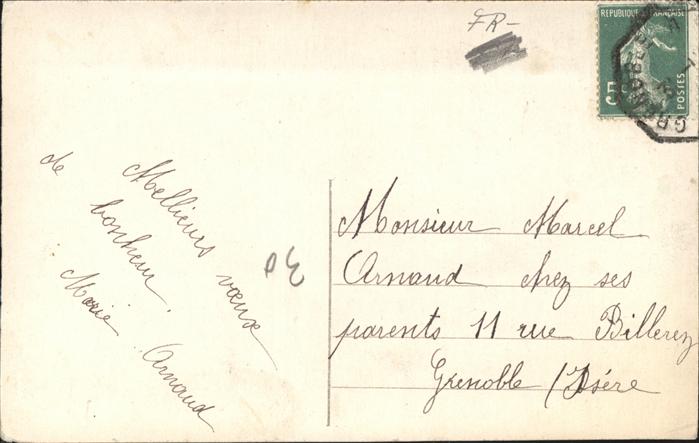 FR-
REPUBLIQUE FRANÇAISE
POSTES
GRENOBLE
Mellieurs vœux
de bonheur.
Marie Arnaud
Monsieur Marcel
Arnaud chez ses
parents 11 rue Billerey
Grenoble / Isére